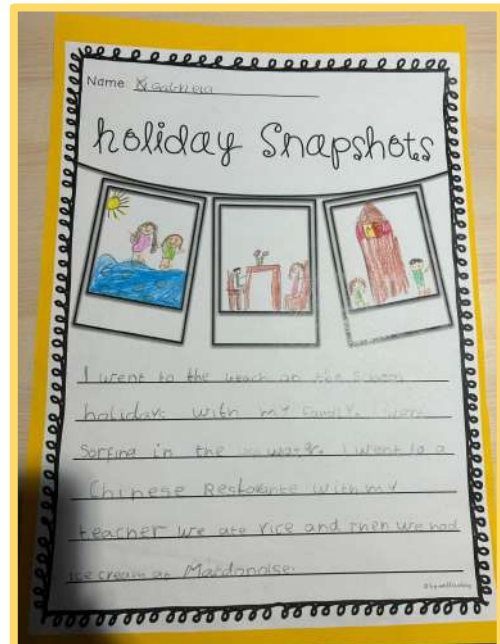 Name Gabriela
holiday Snapshots
I went to the beach on the School
holidays with my Family. I went
Sorfing in the water. I went to a
Chinese Restorante with my
teacher we ate rice and then we had
ice cream at Macdonalse.